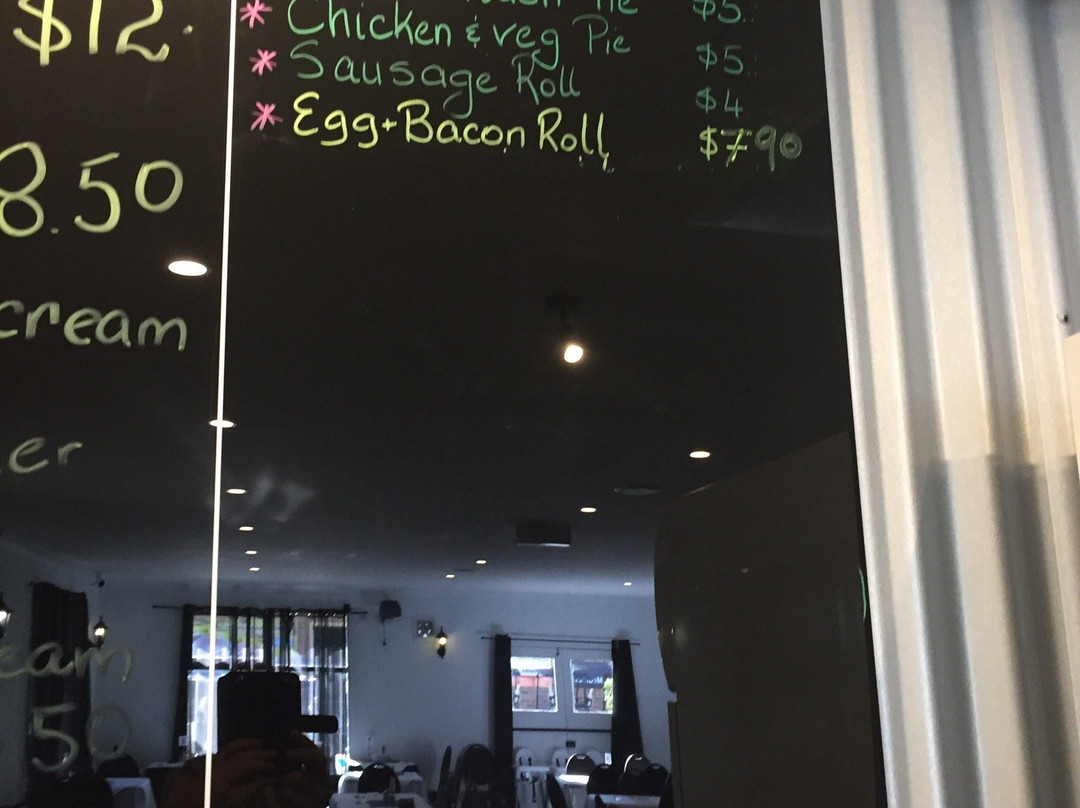 $12.
8.50
cream
er
eam
50
Pie $5.
* Chicken & veg Pie $5.
* Sausage Roll $4
* Egg+Bacon Roll $7.90